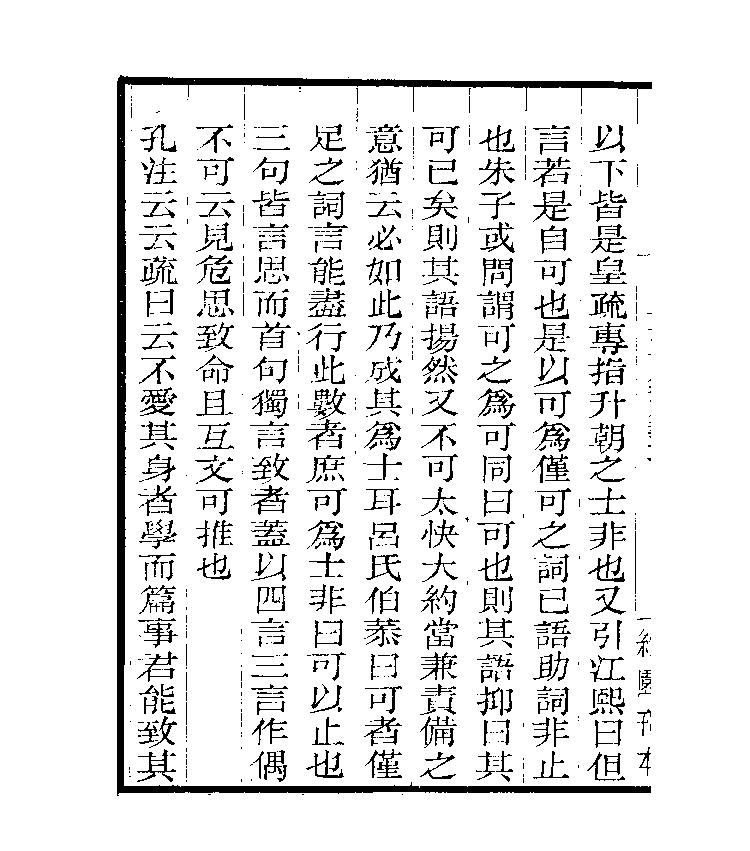 以下皆是皇疏專指升朝之士非也又引江熙曰但
言若是自可也是以可為僅可之詞已語助詞非止
也朱子或問謂可之為可同曰可也則其語抑曰其
可已矣則其語揚然又不可太快大約當兼責備之
意猶云必如此乃成其為士耳呂氏伯恭曰可者僅
足之詞言能盡行此數者庶可為士非曰可以止也
三句皆言思而首句獨言致者蓋以四言三言作偶
不可云見危思致命且互文可推也
孔注云云疏曰云不愛其身者學而篇事君能致其